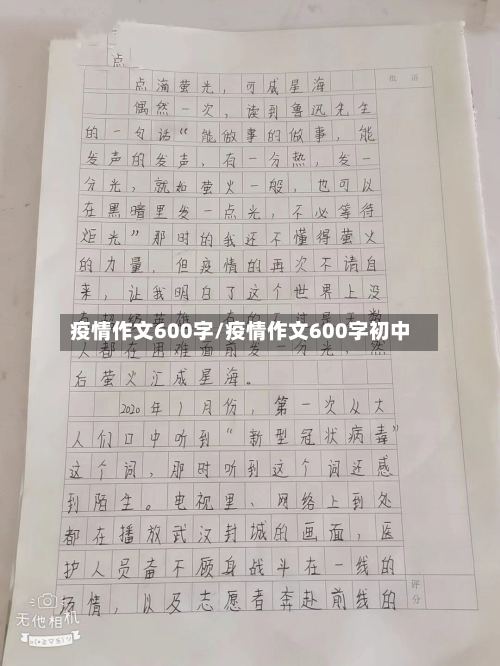 点
点滴萤光，可成星海
批 语
偶然一次，读到鲁迅先生
的一句话“能做事的做事，能
发声的发声，有一分热，发一
分光，就如萤火一般，也可以
在黑暗里发一点光，不必等待
炬光”那时的我还不懂得萤火
的力量，但疫情的再次不请自
来，让我明白了这个世界上没
疫情作文600字/疫情作文600字初中
人都在困难面前发一分光，然
后萤火汇成星海。
2020年1月份，第一次从大
人们口中听到“新型冠状病毒”
这个词，那时听到这个词还感
到陌生。电视里、网络上到处
都在播放武汉封城的画面，医
护人员奋不顾身战斗在一线的
评分
场情，以及志愿者奔赴前线的
无他相机